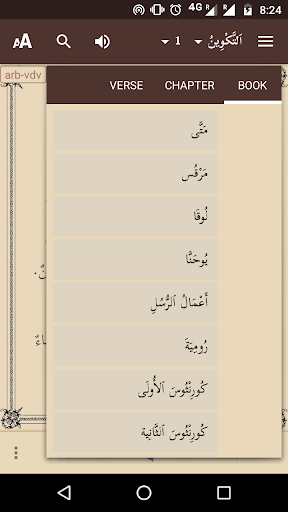 4G R R 8:24
AA اَلتَّكْوِينُ 1
arb-vdv
VERSE CHAPTER BOOK
مَتَّى
مَرْقُس
لُوقَا
يُوحَنَّا
أَعْمَالُ ٱلرُّسُلِ
رُومِيَةَ
كُورِنْثُوسَ ٱلأُولَى
كُورِنْثُوسَ ٱلثَّانِية